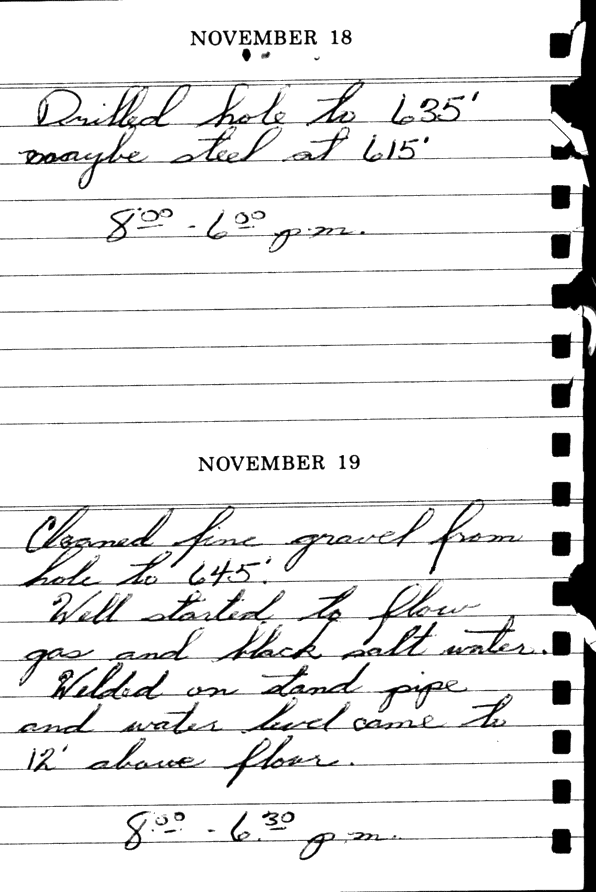 NOVEMBER 18
Drilled hole to 635'
maybe steel at 615'
8:00 - 6:00 p.m.
NOVEMBER 19
Cleaned fine gravel from
hole to 645'.
Well started to flow
gas and black salt water.
Welded on stand pipe
and water level came to
12' above floor.
8:00 - 6:30 p.m.